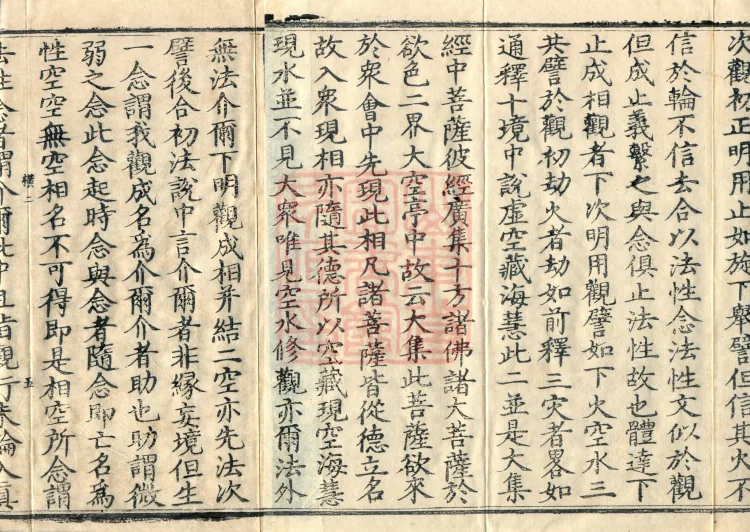 次觀初正明用止如旋下舉譬但信其火不
信於輪不信去合以法性念法性文似於觀
但成止義繫之與念俱止法性故也體達下
止成相觀者下次明用觀譬如下火空水三
共譬於觀初劫火者劫如前釋三灾者畧如
通釋十境中說虛空藏海慧此二並是大集
經中菩薩彼經廣集十方諸佛諸大菩薩於
欲色二界大空亭中故云大集此菩薩欲來
於衆會中先現此相凡諸菩薩皆從德立名
故入衆現相亦隨其德所以空藏現空海慧
現水並不見大衆唯見空水修觀亦爾法外
無法介爾下明觀成相并結二空亦先法次
譬後合初法說中言介爾者非緣妄境但生
一念謂我觀成名爲介爾介者助也助謂微
弱之念此念起時念與念者隨念即亡名爲
性空空無空相名不可得即是相空所念謂
橫二 五
法性念者謂介爾此中且皆觀行